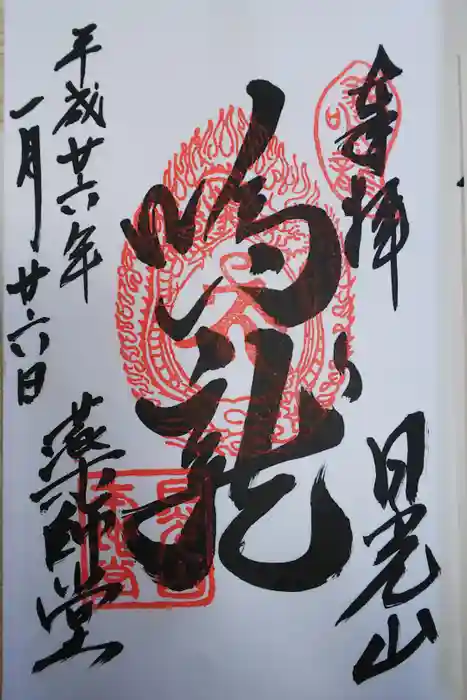 奉拝
日光山
鳴龍
薬師堂
平成廿六年
一月廿六日